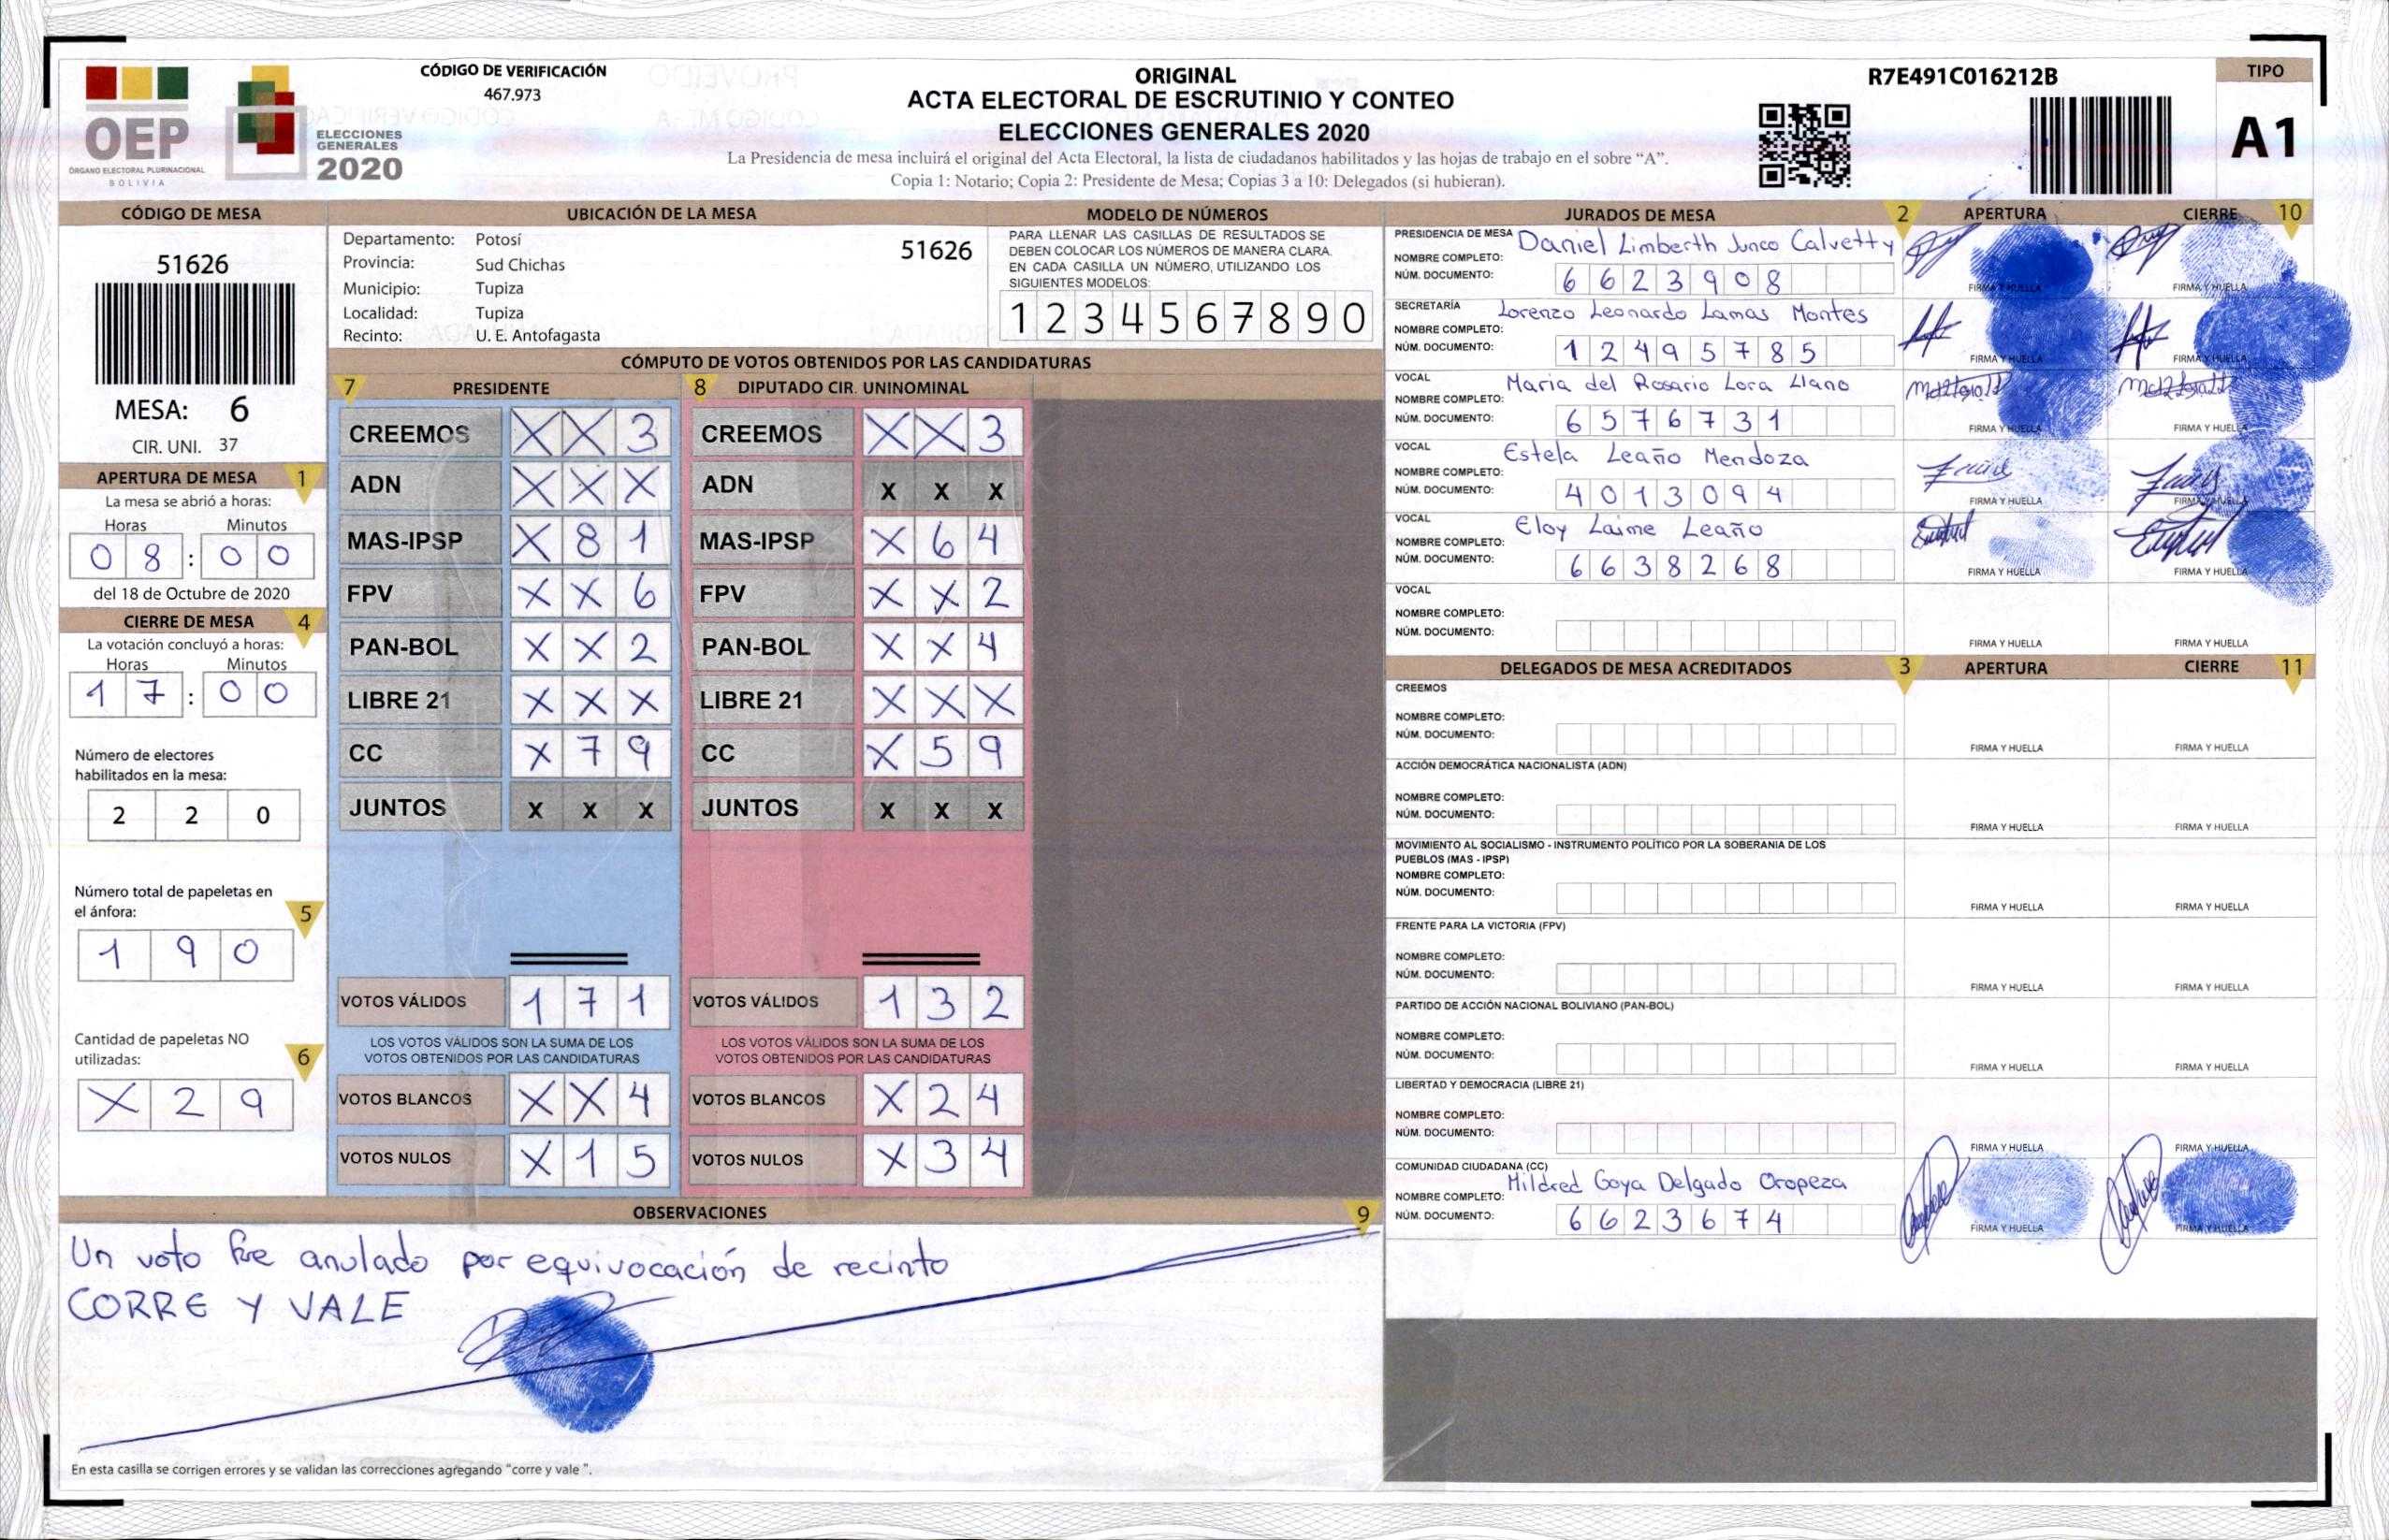 OEP
ÓRGANO ELECTORAL PLURINACIONAL
BOLIVIA
ELECCIONES
GENERALES
2020
CÓDIGO DE VERIFICACIÓN
467.973
ORIGINAL
ACTA ELECTORAL DE ESCRUTINIO Y CONTEO
ELECCIONES GENERALES 2020
La Presidencia de mesa incluirá el original del Acta Electoral, la lista de ciudadanos habilitados y las hojas de trabajo en el sobre “A”.
Copia 1: Notario; Copia 2: Presidente de Mesa; Copias 3 a 10: Delegados (si hubieran).
R7E491C016212B
TIPO
A1
CÓDIGO DE MESA
51626
MESA: 6
CIR. UNI. 37
APERTURA DE MESA 1
La mesa se abrió a horas:
Horas Minutos
0 8 : 0 0
del 18 de Octubre de 2020
CIERRE DE MESA 4
La votación concluyó a horas:
Horas Minutos
1 7 : 0 0
Número de electores
habilitados en la mesa:
2 2 0
Número total de papeletas en
el ánfora: 5
1 9 0
Cantidad de papeletas NO
utilizadas: 6
X 2 9
UBICACIÓN DE LA MESA
Departamento: Potosí 51626
Provincia: Sud Chichas
Municipio: Tupiza
Localidad: Tupiza
Recinto: U. E. Antofagasta
MODELO DE NÚMEROS
PARA LLENAR LAS CASILLAS DE RESULTADOS SE
DEBEN COLOCAR LOS NÚMEROS DE MANERA CLARA.
EN CADA CASILLA UN NÚMERO, UTILIZANDO LOS
SIGUIENTES MODELOS:
1 2 3 4 5 6 7 8 9 0
CÓMPUTO DE VOTOS OBTENIDOS POR LAS CANDIDATURAS
7 PRESIDENTE
CREEMOS X X 3
ADN X X X
MAS-IPSP X 8 1
FPV X X 6
PAN-BOL X X 2
LIBRE 21 X X X
CC X 7 9
JUNTOS X X X
VOTOS VÁLIDOS 1 7 1
LOS VOTOS VÁLIDOS SON LA SUMA DE LOS
VOTOS OBTENIDOS POR LAS CANDIDATURAS
VOTOS BLANCOS X X 4
VOTOS NULOS X 1 5
8 DIPUTADO CIR. UNINOMINAL
CREEMOS X X 3
ADN X X X
MAS-IPSP X 6 4
FPV X X 2
PAN-BOL X X 4
LIBRE 21 X X X
CC X 5 9
JUNTOS X X X
VOTOS VÁLIDOS 1 3 2
LOS VOTOS VÁLIDOS SON LA SUMA DE LOS
VOTOS OBTENIDOS POR LAS CANDIDATURAS
VOTOS BLANCOS X 2 4
VOTOS NULOS X 3 4
OBSERVACIONES 9
Un voto fue anulado por equivocación de recinto
CORRE Y VALE
En esta casilla se corrigen errores y se validan las correcciones agregando “corre y vale ”.
JURADOS DE MESA 2 APERTURA CIERRE 10
PRESIDENCIA DE MESA
NOMBRE COMPLETO: Daniel Limberth Junco Calvetty
NÚM. DOCUMENTO: 6 6 2 3 9 0 8
FIRMA Y HUELLA FIRMA Y HUELLA
SECRETARÍA
NOMBRE COMPLETO: Lorenzo Leonardo Lamas Montes
NÚM. DOCUMENTO: 1 2 4 9 5 7 8 5
FIRMA Y HUELLA FIRMA Y HUELLA
VOCAL
NOMBRE COMPLETO: Maria del Rosario Lora Llano
NÚM. DOCUMENTO: 6 5 7 6 7 3 1
FIRMA Y HUELLA FIRMA Y HUELLA
VOCAL
NOMBRE COMPLETO: Estela Leaño Mendoza
NÚM. DOCUMENTO: 4 0 1 3 0 9 4
FIRMA Y HUELLA FIRMA Y HUELLA
VOCAL
NOMBRE COMPLETO: Eloy Laime Leaño
NÚM. DOCUMENTO: 6 6 3 8 2 6 8
FIRMA Y HUELLA FIRMA Y HUELLA
VOCAL
NOMBRE COMPLETO:
NÚM. DOCUMENTO:
FIRMA Y HUELLA FIRMA Y HUELLA
DELEGADOS DE MESA ACREDITADOS 3 APERTURA CIERRE 11
CREEMOS
NOMBRE COMPLETO:
NÚM. DOCUMENTO:
FIRMA Y HUELLA FIRMA Y HUELLA
ACCIÓN DEMOCRÁTICA NACIONALISTA (ADN)
NOMBRE COMPLETO:
NÚM. DOCUMENTO:
FIRMA Y HUELLA FIRMA Y HUELLA
MOVIMIENTO AL SOCIALISMO - INSTRUMENTO POLÍTICO POR LA SOBERANIA DE LOS
PUEBLOS (MAS - IPSP)
NOMBRE COMPLETO:
NÚM. DOCUMENTO:
FIRMA Y HUELLA FIRMA Y HUELLA
FRENTE PARA LA VICTORIA (FPV)
NOMBRE COMPLETO:
NÚM. DOCUMENTO:
FIRMA Y HUELLA FIRMA Y HUELLA
PARTIDO DE ACCIÓN NACIONAL BOLIVIANO (PAN-BOL)
NOMBRE COMPLETO:
NÚM. DOCUMENTO:
FIRMA Y HUELLA FIRMA Y HUELLA
LIBERTAD Y DEMOCRACIA (LIBRE 21)
NOMBRE COMPLETO:
NÚM. DOCUMENTO:
FIRMA Y HUELLA FIRMA Y HUELLA
COMUNIDAD CIUDADANA (CC)
NOMBRE COMPLETO: Mildred Goya Delgado Oropeza
NÚM. DOCUMENTO: 6 6 2 3 6 7 4
FIRMA Y HUELLA FIRMA Y HUELLA